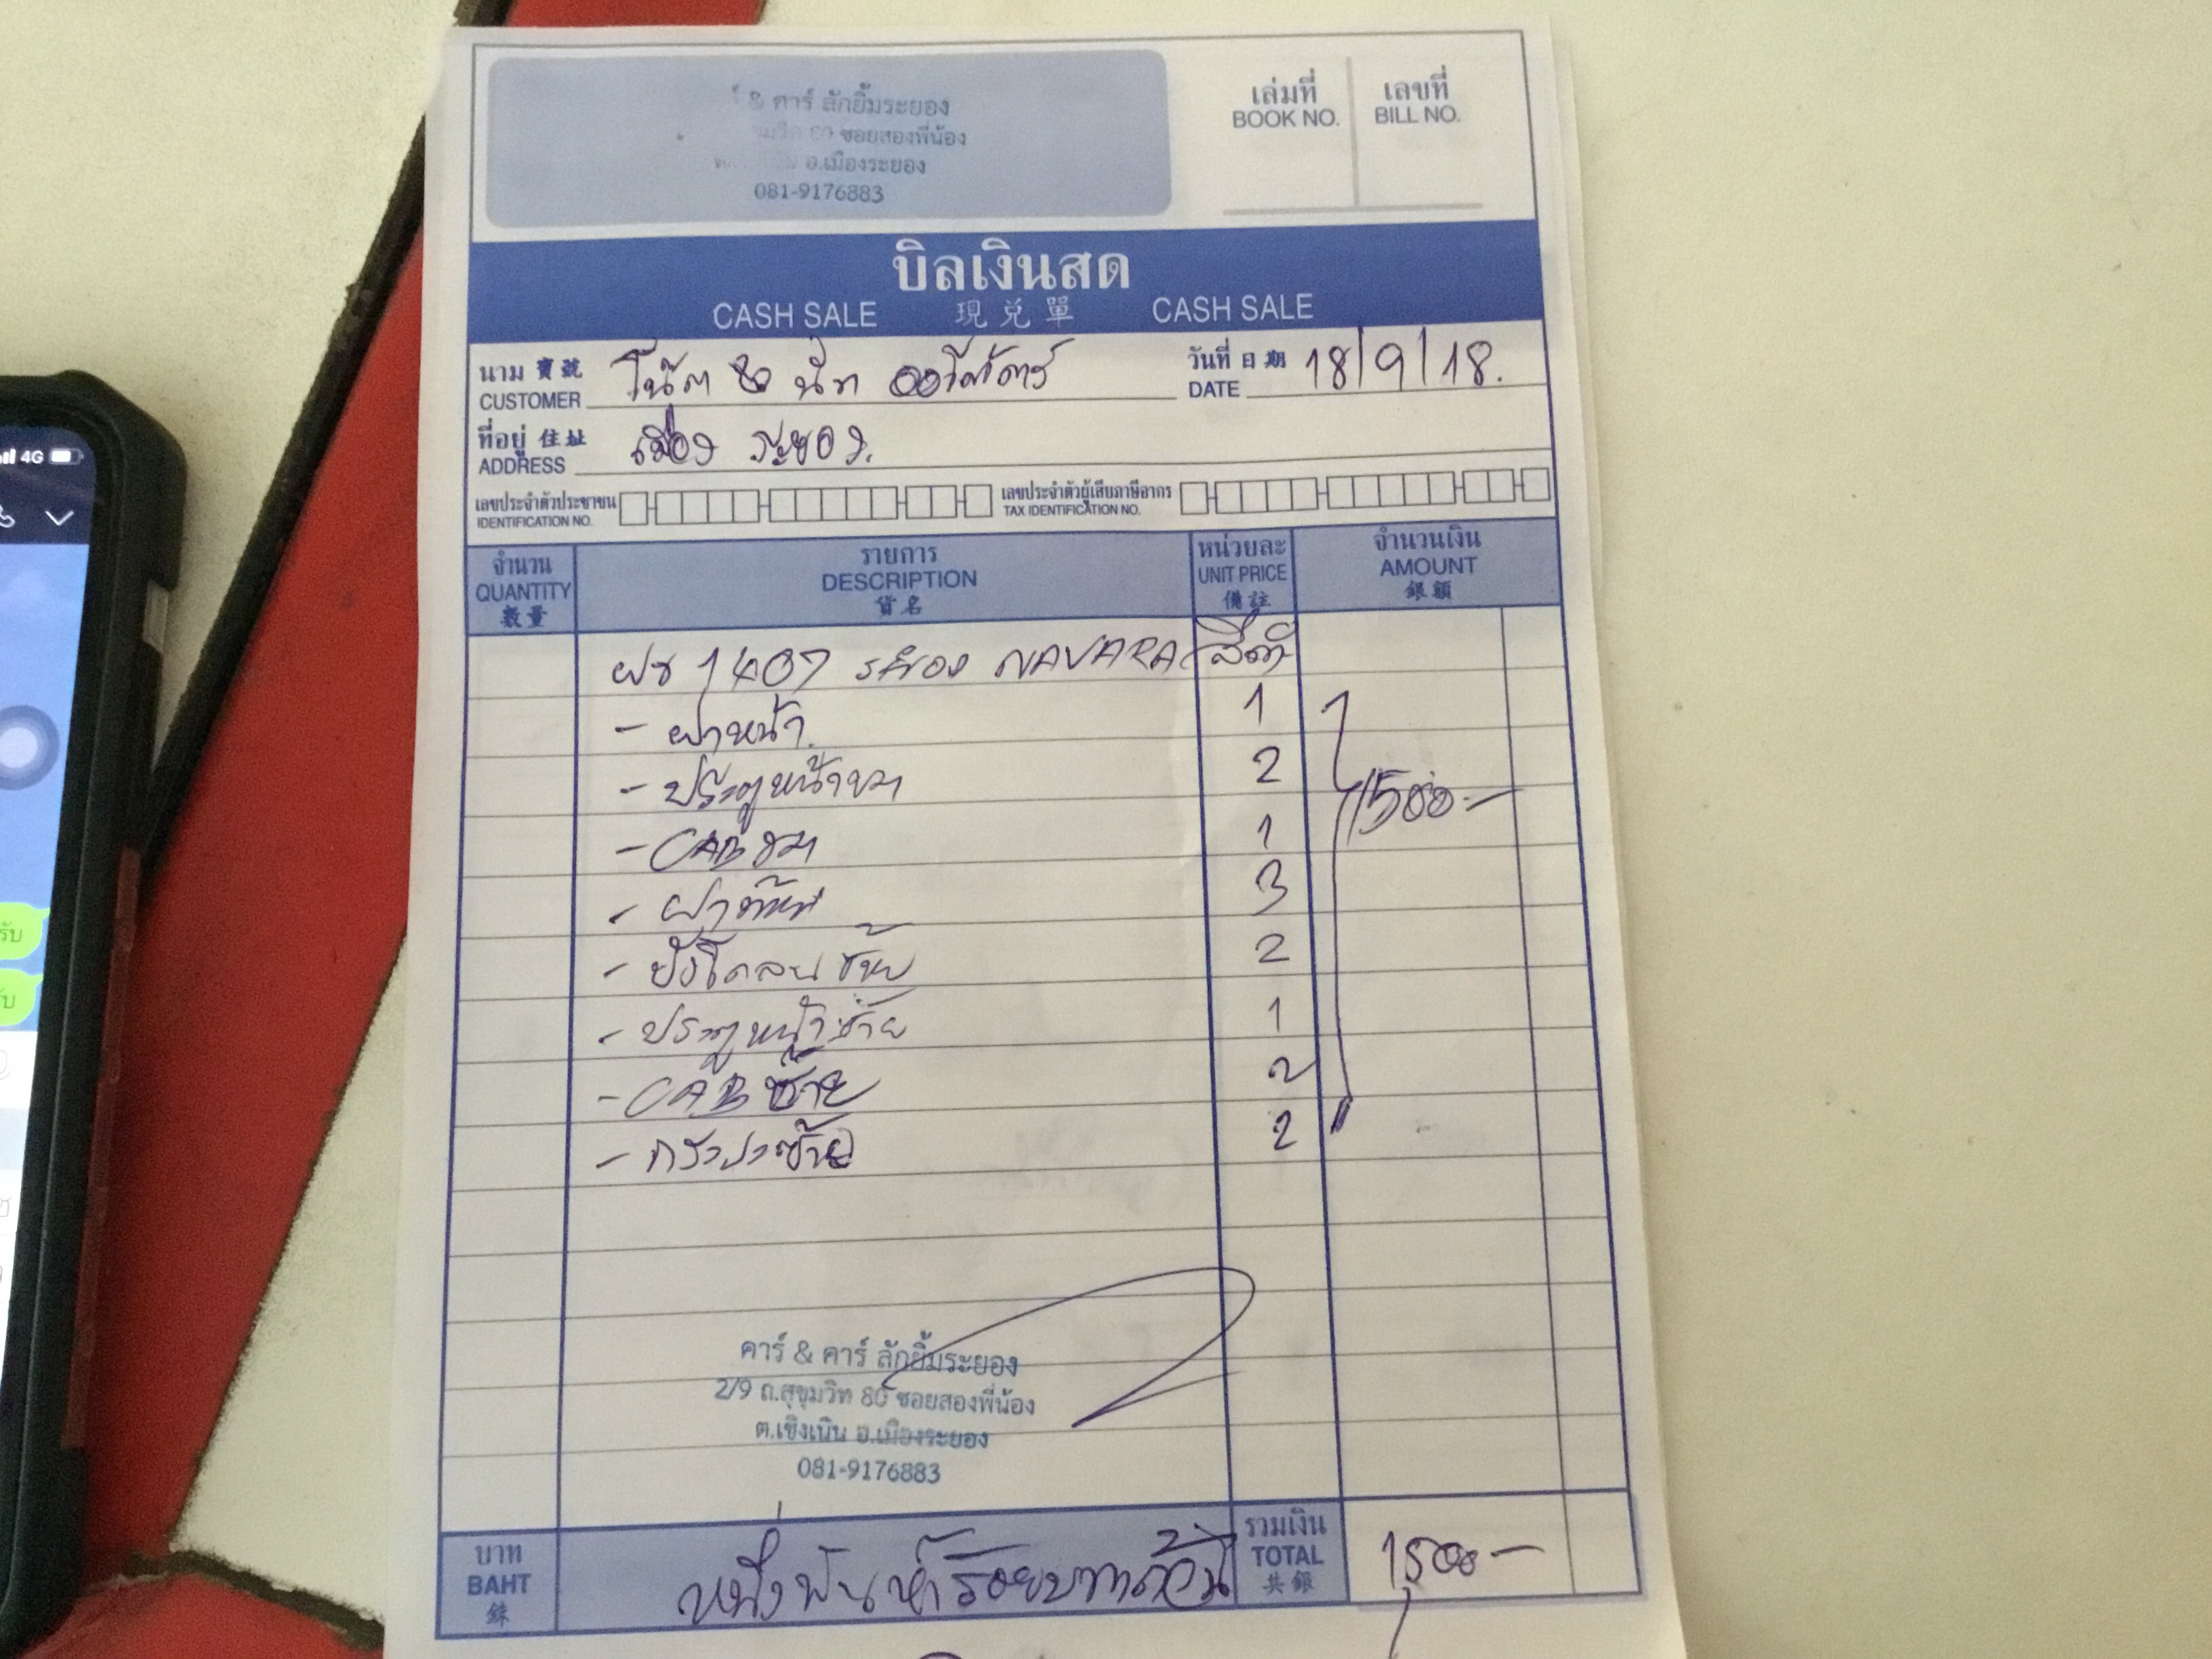 & คาร์ ลักยิ้มระยอง
80 ซอยสองพี่น้อง
อ.เมืองระยอง
081-9176883
เล่มที่
BOOK NO.
เลขที่
BILL NO.
บิลเงินสด
CASH SALE 現兌單 CASH SALE
นาม 寶號
CUSTOMER
โน๊ต & นัท ออโต้คาร์
วันที่ 日期
DATE
18/9/18.
ที่อยู่ 住址
ADDRESS
เมือง ระยอง.
เลขประจำตัวประชาชน
IDENTIFICATION NO.
เลขประจำตัวผู้เสียภาษีอากร
TAX IDENTIFICATION NO.
จำนวน
QUANTITY
數量
รายการ
DESCRIPTION
貨名
หน่วยละ
UNIT PRICE
備註
จำนวนเงิน
AMOUNT
銀額
ผช 1407 ระยอง NAVARA สีดำ
- ฝาหน้า. 1
- ประตูหน้าขวา 2
1500.-
- CAB ขวา 1
- ฝาท้าย 3
- บังโคลนซ้าย 2
- ประตูหน้าซ้าย 1
- CAB ซ้าย 2
- กระบะซ้าย 2
คาร์ & คาร์ ลักยิ้มระยอง
2/9 ถ.สุขุมวิท 80 ซอยสองพี่น้อง
ต.เชิงเนิน อ.เมืองระยอง
081-9176883
บาท
BAHT
銖
หนึ่งพันห้าร้อยบาทถ้วน
รวมเงิน
TOTAL
共銀
1,500-
4G
รับ